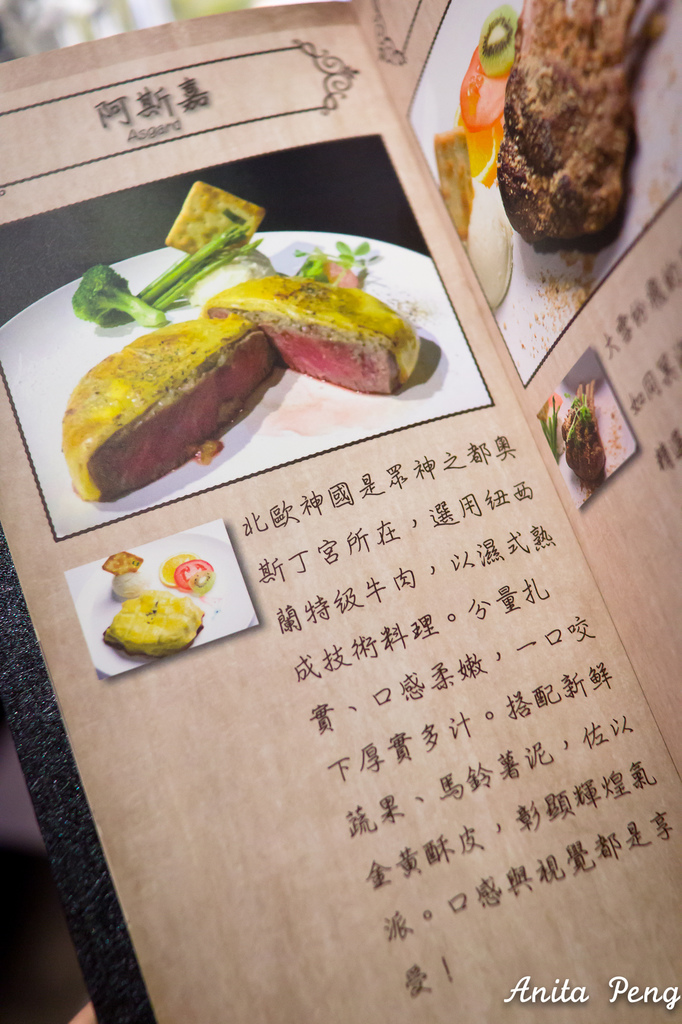 阿斯嘉
Asgard
北歐神國是眾神之都奧
斯丁宮所在，選用紐西
蘭特級牛肉，以濕式熟
成技術料理。分量扎
實、口感柔嫩，一口咬
下厚實多汁。搭配新鮮
蔬果、馬鈴薯泥，佐以
金黃酥皮，彰顯輝煌氣
派。口感與視覺都是享
受！
大雪紛飛的
如同
精選
Anita Peng